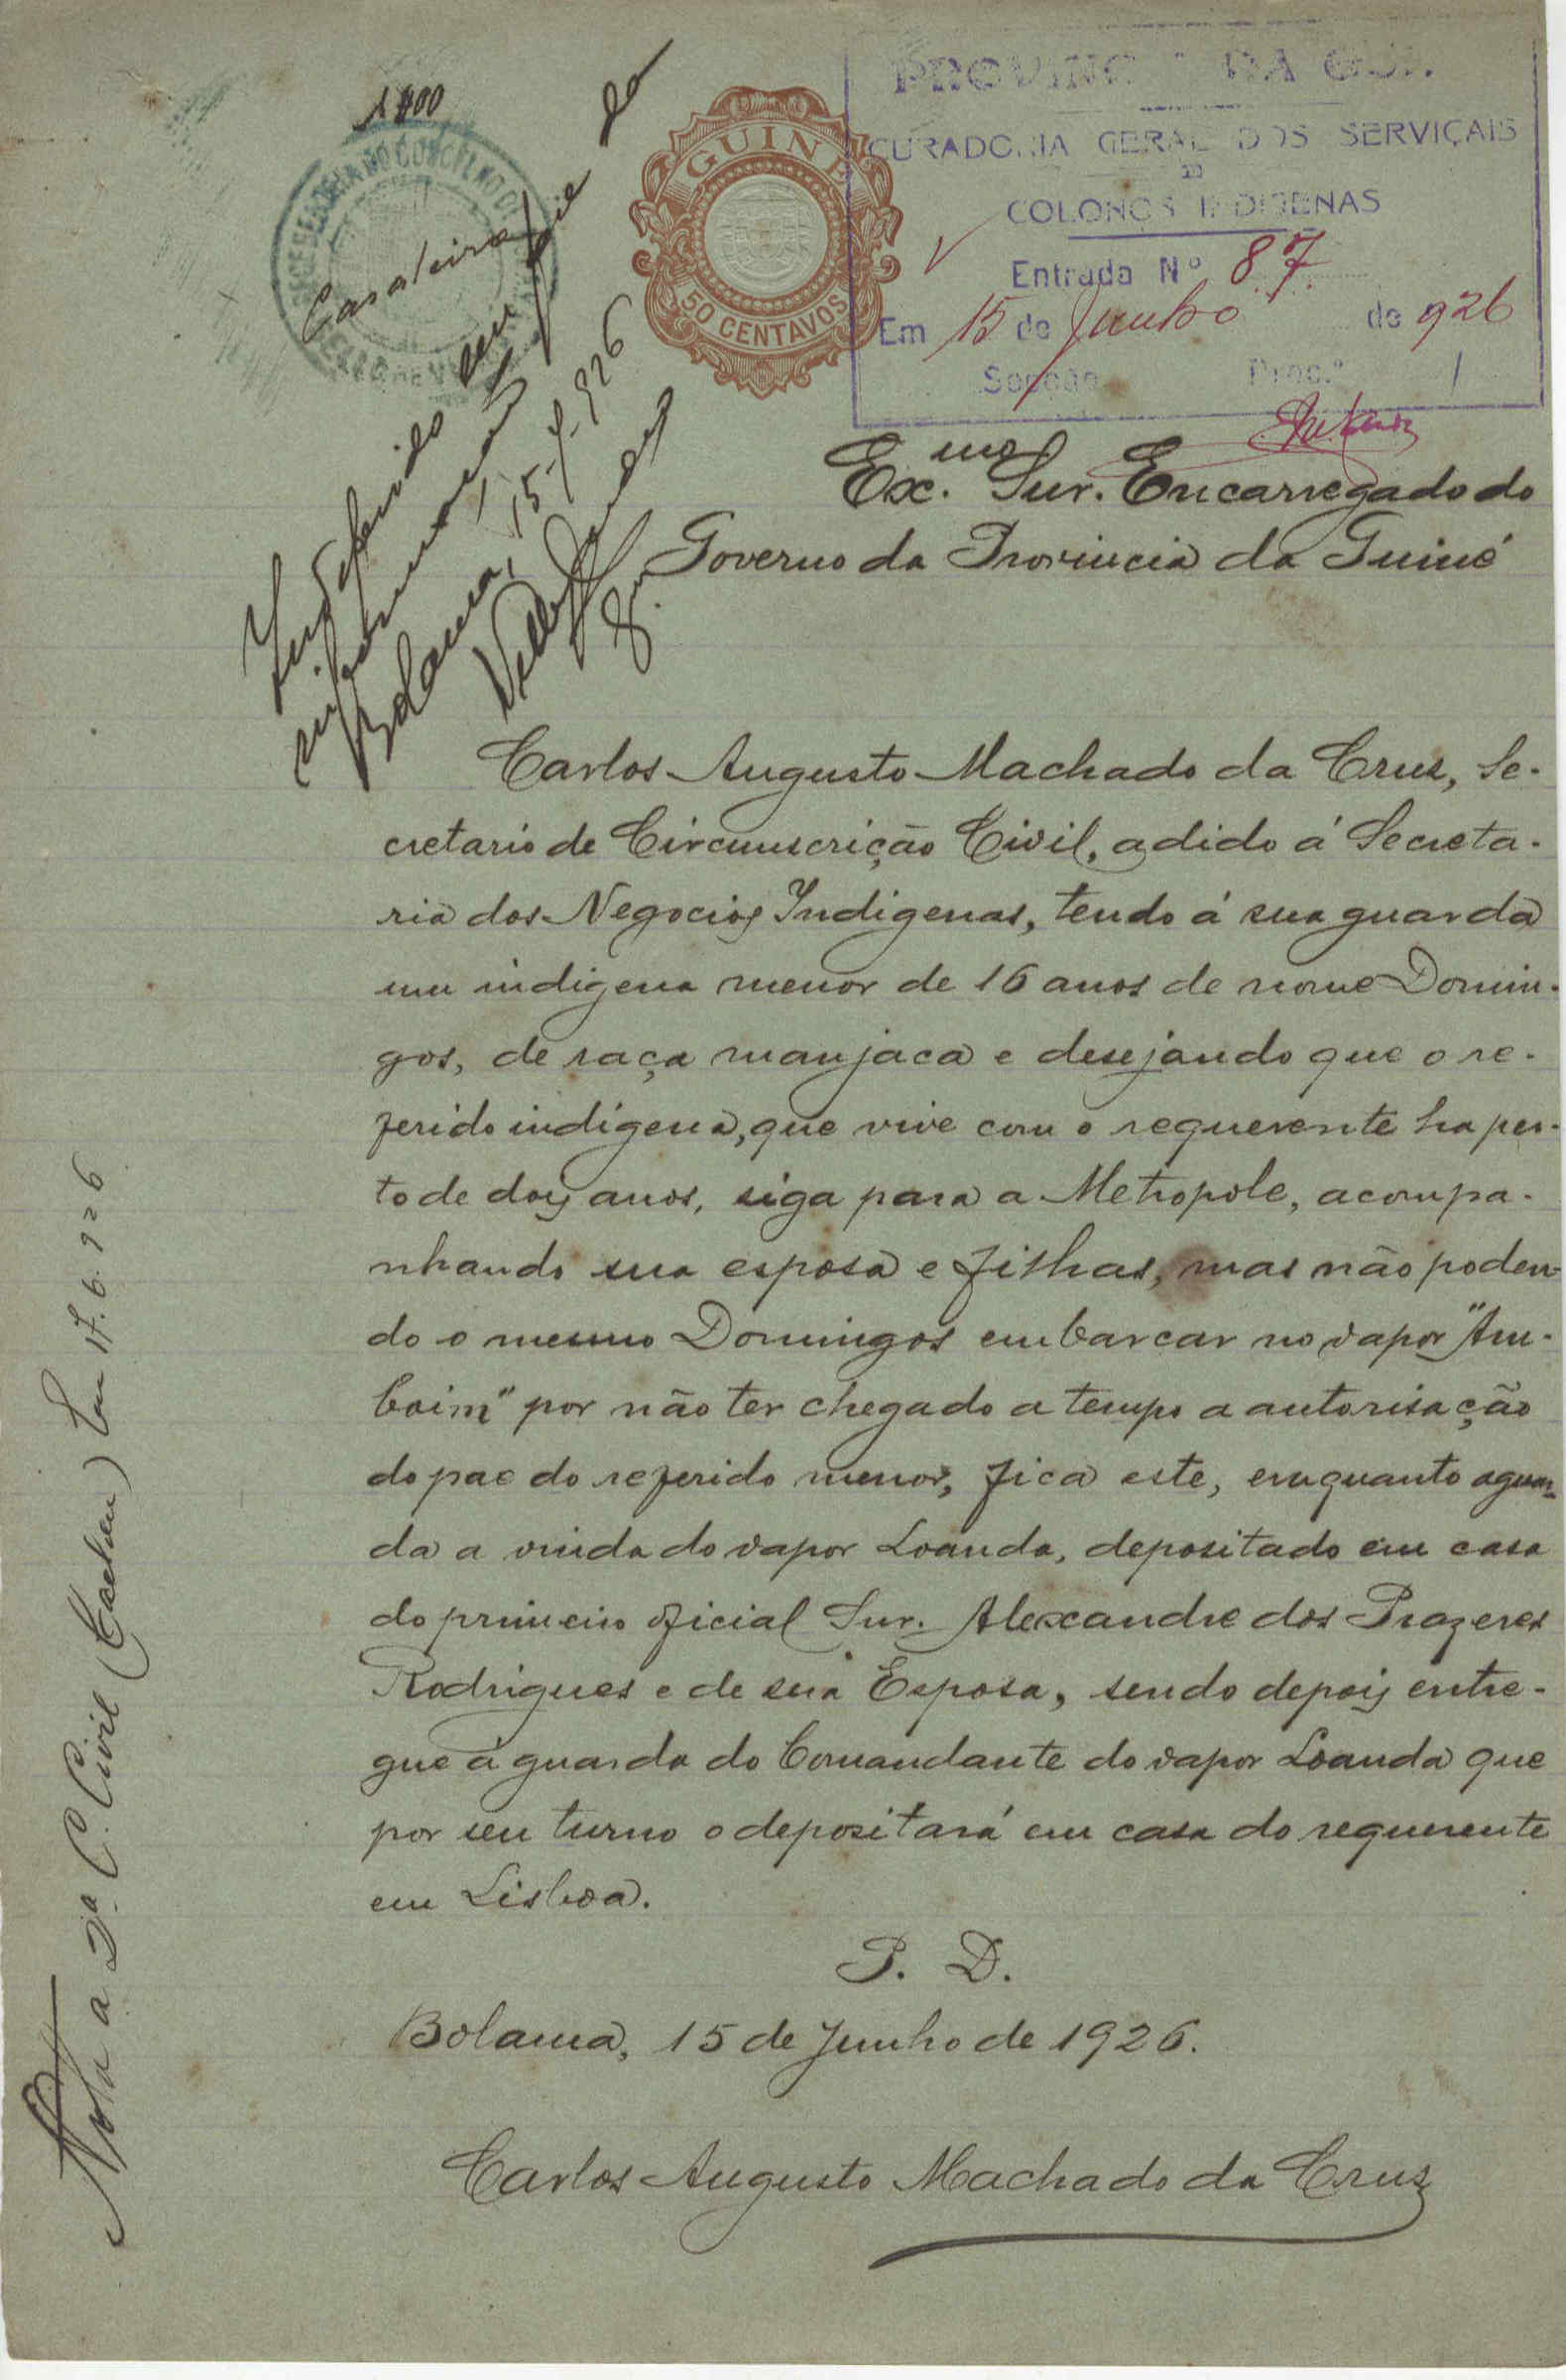 1$00
GUINÉ
50 CENTAVOS
PROVINC DA GUI
CURADORIA GERAL DOS SERVIÇAIS
COLONOS INDIGENAS
Entrada Nº 87
Em 15 de Junho de 926
Secção Proc.º
Indeferido em face da
informação
Bolama, 15-6-926
Ex.mo Snr. Encarregado do
Governo da Provincia da Guiné
Carlos Augusto Machado da Cruz, Se-
cretario de Circumscrição Civil, adido á Secreta-
ria dos Negocios Indigenas, tendo á sua guarda
um indigena menor de 16 anos de nome Domin-
gos, de raça manjaca e desejando que o re-
ferido indigena, que vive com o requerente ha per-
to de dois anos, siga para a Metropole, acompa-
nhando sua esposa e filhas, mas não poden-
do o mesmo Domingos embarcar no vapor "Am-
boim" por não ter chegado a tempo a autorisação
do pae do referido menor, fica este, emquanto aguar-
da a vinda do vapor Loanda, depositado em casa
do primeiro oficial Snr. Alexandre dos Prazeres
Rodrigues e de sua Esposa, sendo depois entre-
gue á guarda do Comandante do vapor Loanda que
por seu turno o depositará em casa do requerente
em Lisboa.
P. D.
Bolama, 15 de Junho de 1926.
Carlos Augusto Machado da Cruz
Nota a 2ª C. Civil (Cacheu) Em 17.6.926